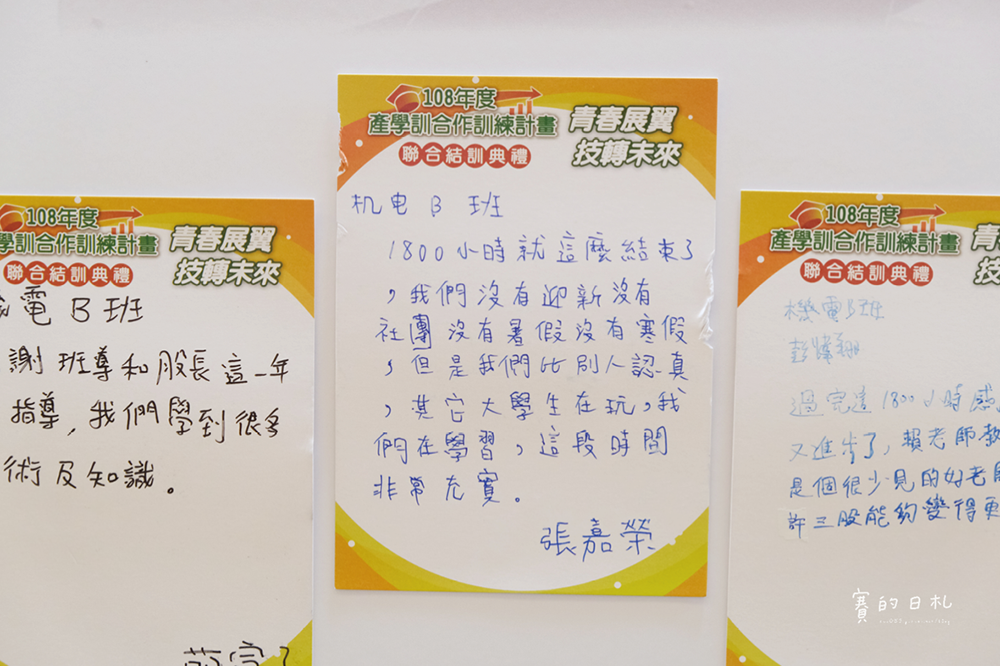 108年度
產學訓合作訓練計畫
聯合結訓典禮
青春展翼
技轉未來
机电B班
1800小時就這麼結束了
，我們沒有迎新沒有
社團沒有暑假沒有寒假
，但是我們比別人認真
，其它大學生在玩，我
們在學習，這段時間
非常充實。
張嘉榮
108年度
學訓合作訓練計畫
聯合結訓典禮
青春展翼
技轉未來
電B班
謝班導和股長這一年
指導，我們學到很多
術及知識。
108年度
產學訓合作訓練計畫
聯合結訓典禮
青
技
機電B班
過完這1800小時感
又進步了，賴老師教
是個很少見的好老師
許三股能夠變得更
賽的日札